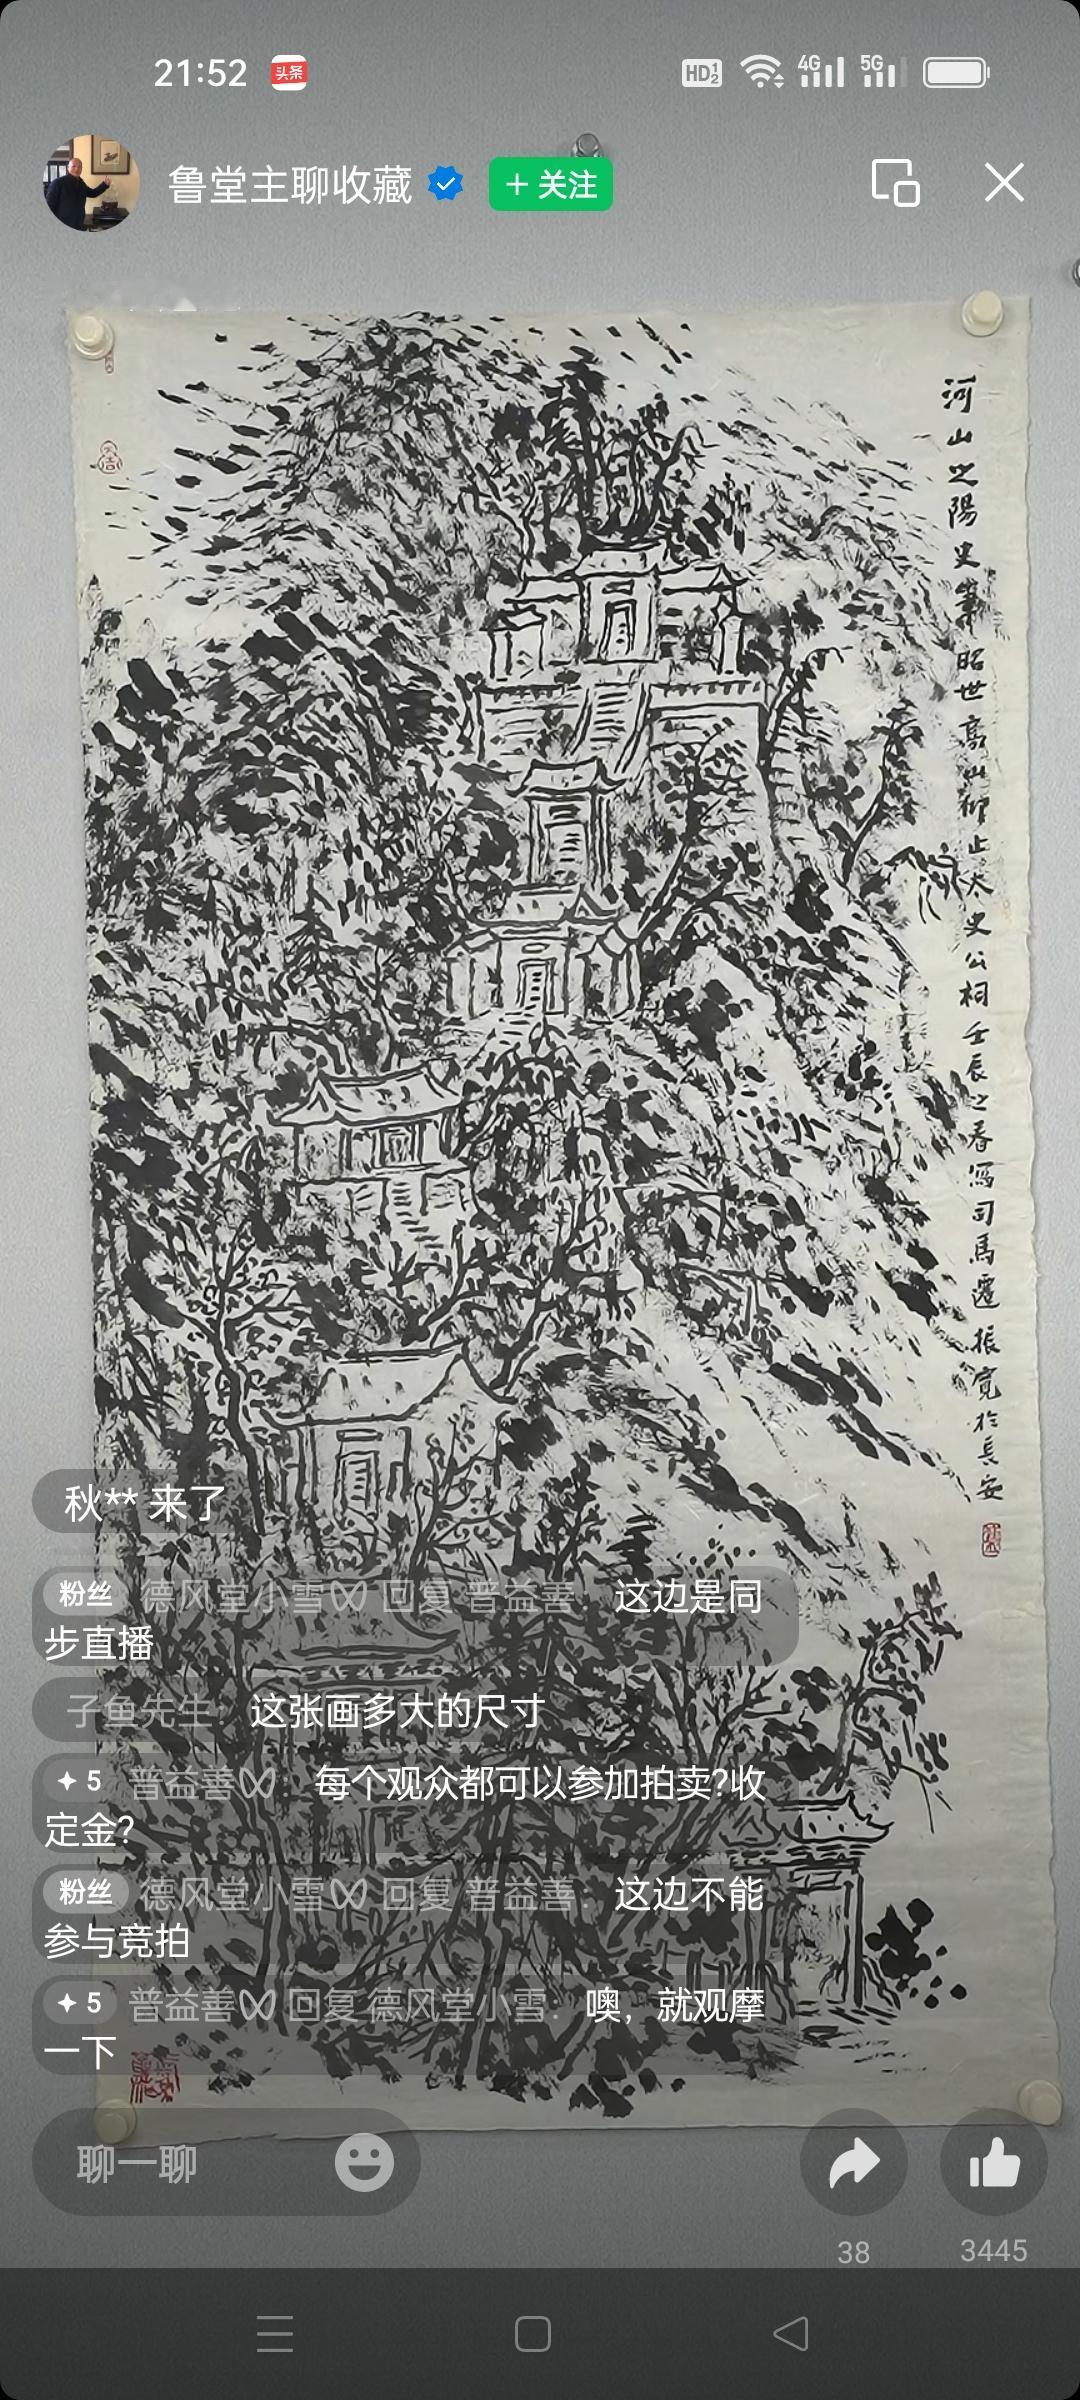 21:52
头条
HD 1 2
4G
5G
鲁堂主聊收藏
+ 关注
河山之陽史筆昭世高山仰止太史公祠壬辰之春寫司馬遷 振寬於長安
秋** 来了
粉丝 德风堂小雪 回复 普益善：这边是同
步直播
子鱼先生：这张画多大的尺寸
5 普益善：每个观众都可以参加拍卖?收
定金?
粉丝 德风堂小雪 回复 普益善：这边不能
参与竞拍
5 普益善 回复 德风堂小雪：噢，就观摩
一下
聊一聊
38
3445